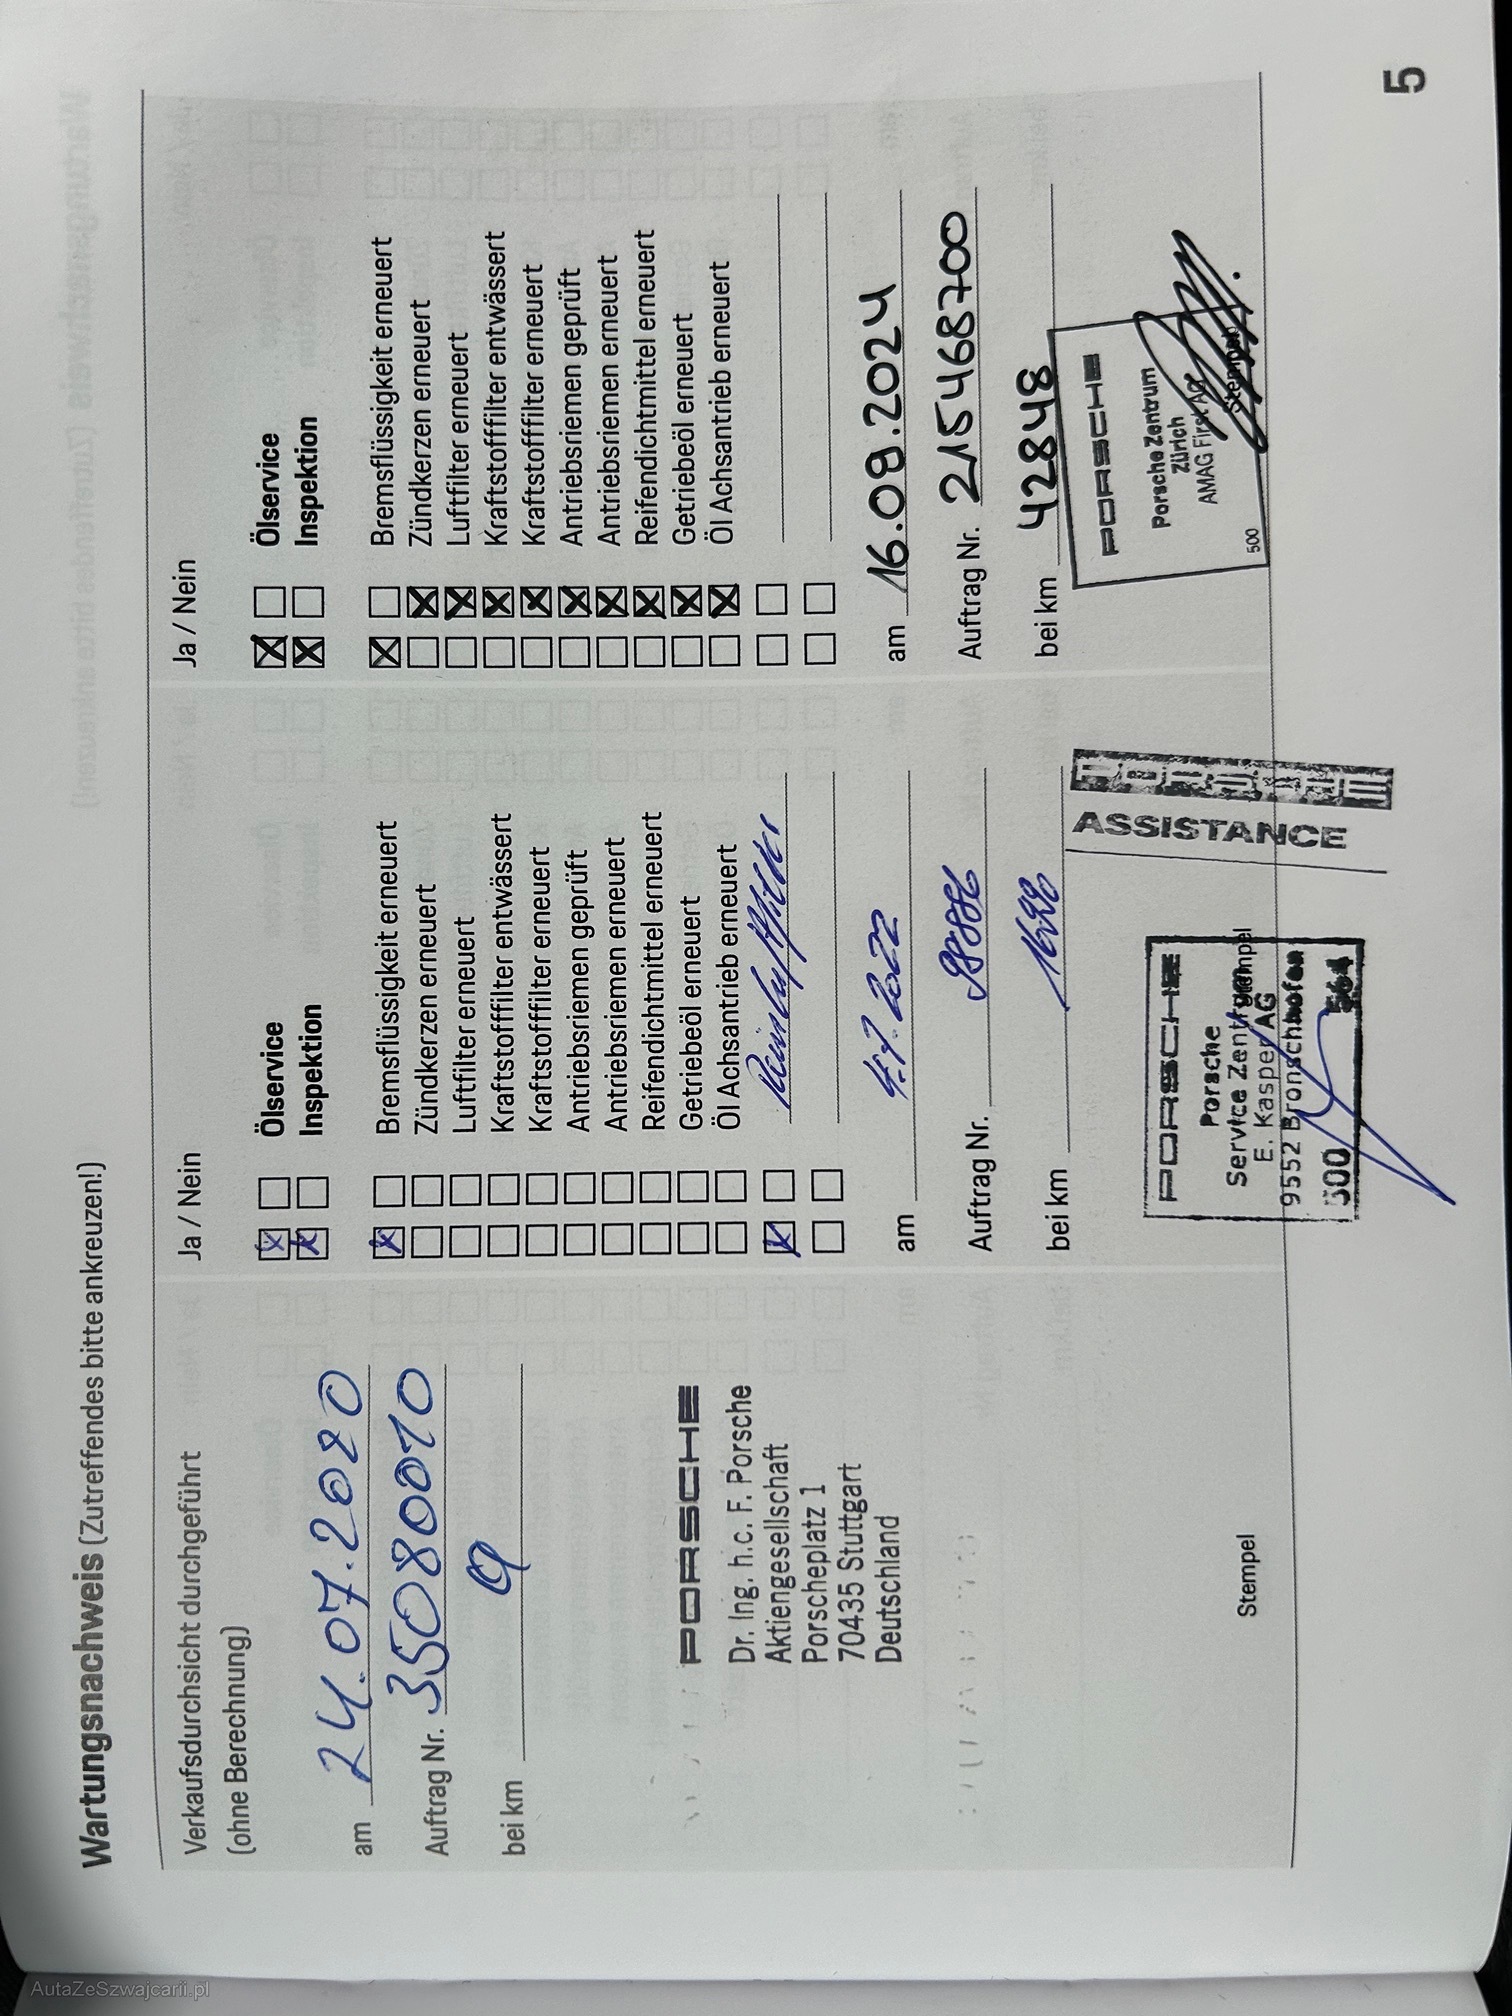 Wartungsnachweis (Zutreffendes bitte ankreuzen!)
Verkaufsdurchsicht durchgeführt
(ohne Berechnung)
am 24.07.2020
Auftrag Nr. 35080010
bei km
PORSCHE
Dr. Ing. h.c. F. Porsche
Aktiengesellschaft
Porscheplatz 1
70435 Stuttgart
Deutschland
Stempel
Ja / Nein
Ölservice
Inspektion
Bremsflüssigkeit erneuert
Zündkerzen erneuert
Luftfilter erneuert
Kraftstofffilter entwässert
Kraftstofffilter erneuert
Antriebsriemen geprüft
Antriebsriemen erneuert
Reifendichtmittel erneuert
Getriebeöl erneuert
Öl Achsantrieb erneuert
Reinluftfilter
am 4.7.2022
Auftrag Nr.
bei km
PORSCHE
Porsche
Service Zentrum
E. Kasper AG
9552 Bronschhofen
500 564
Stempel
PORSCHE
ASSISTANCE
Ja / Nein
Ölservice
Inspektion
Bremsflüssigkeit erneuert
Zündkerzen erneuert
Luftfilter erneuert
Kraftstofffilter entwässert
Kraftstofffilter erneuert
Antriebsriemen geprüft
Antriebsriemen erneuert
Reifendichtmittel erneuert
Getriebeöl erneuert
Öl Achsantrieb erneuert
am 16.09.2024
Auftrag Nr. 215468700
bei km 42848
PORSCHE
Porsche Zentrum
Zürich
AMAG First AG
500
Stempel
5
AutaZeSzwajcarii.pl